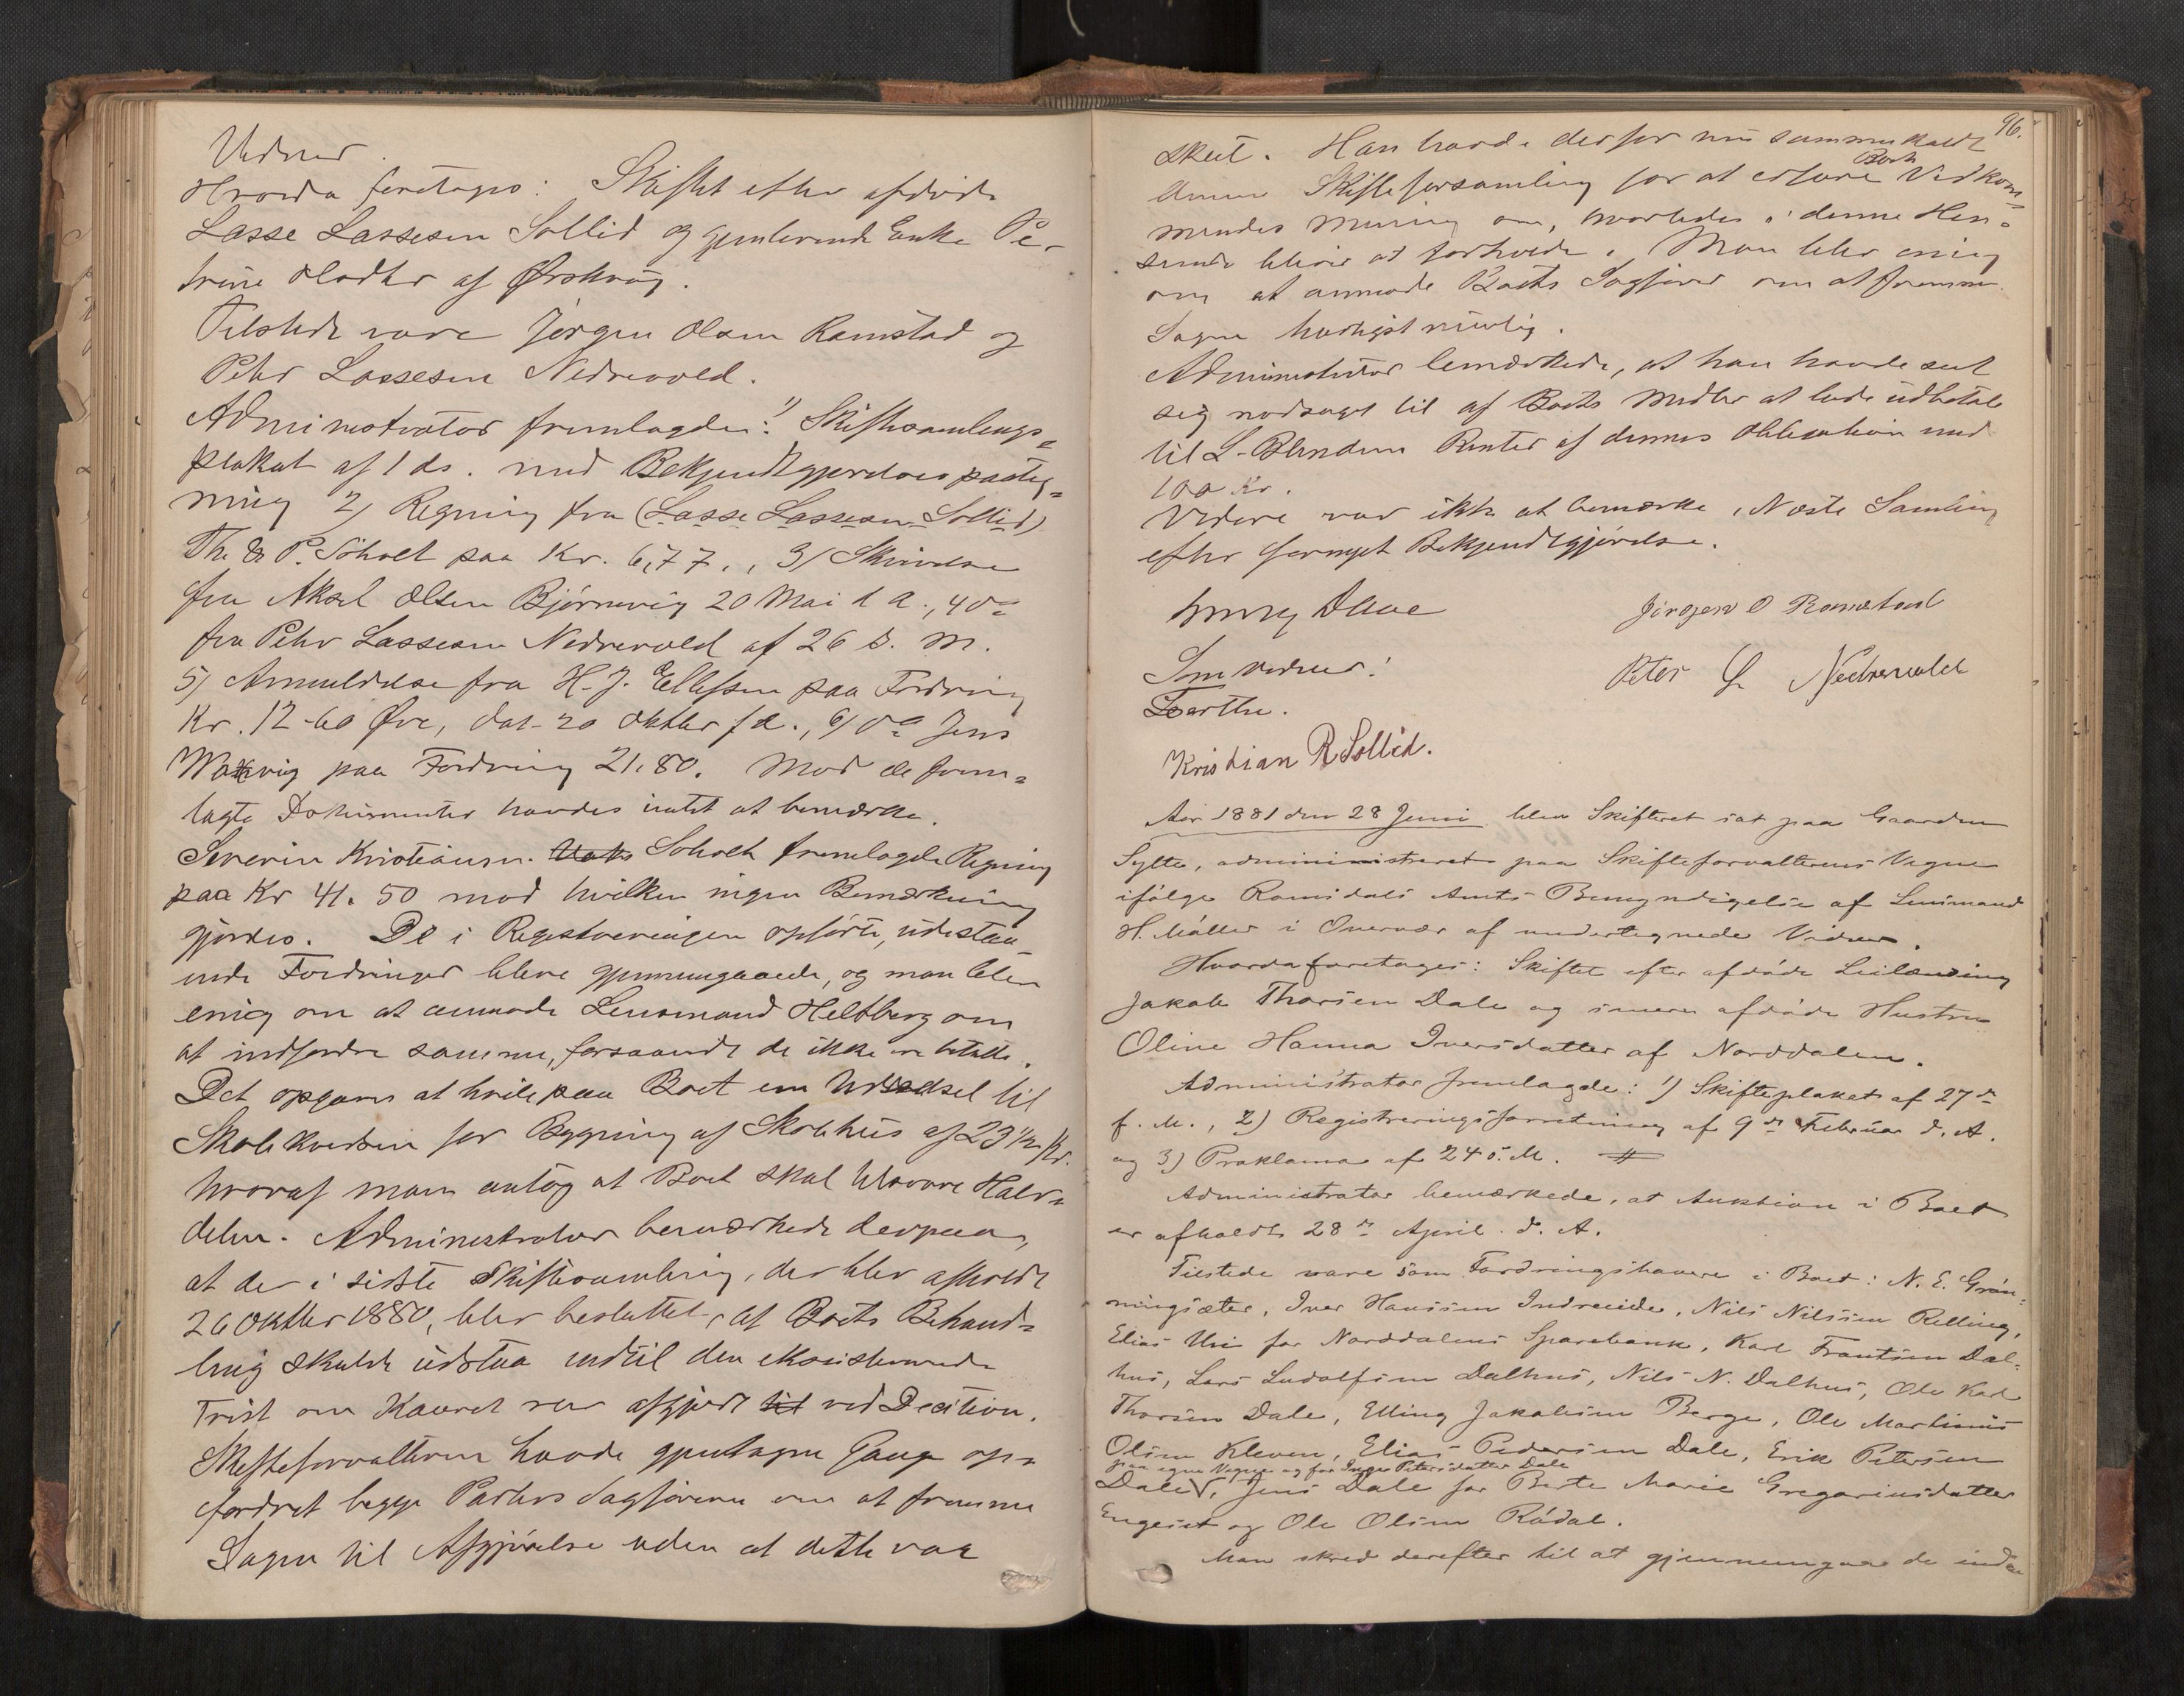 Vidner.
Hvorda foretages: Skiftet efter afdøde
Lasse Lassesen Sollid og gjenlevende Enke Pe-
trine Olsdtr af Ørskoug.
Tilstede vare Jørgen Olsen Ramstad og
Peter Lassesen Nedrevold.
Administrator fremlagde: 1) Skiftesamlings-
plakat af 1 ds. med Bekjendtgjørelsespåteg-
ning 2) Regning fra (Lasse Lassesen Sollid)
Th. & P. Søholt paa Kr. 6,77., 3) Skrivelse
fra Aksel Olsen Bjørnevig 20 Mai d A., 4 do
fra Peter Lassesen Nedrevold af 26 d. M.
5) Anmeldelse fra H. J. Ellefsen paa Fordring
Kr. 12-60 Øre, dat. 20 Oktber f A., 6) do Jens
Waxvig paa Fordring 21.80. Mod de frem-
lagte Dokumenter havdes intet at bemærke.
Severin Kristiansen Søholt fremlagde Regning
paa Kr 41.50 mod hvilken ingen Bemærkning
gjordes. De i Registreringen opførte, udestaa-
ende Fordringer bleve gjennemgaaede, og man blev
enig om at anmode Lensmand Heltberg om
at indfordre samme, forsaavidt de ikke ere betalte.
Det opgaves at hvile paa Boet en Udredsel til
Skolekredsen for Bygning af Skolehus af 23 1/2 Kr.
hvoraf man antog at Boet skal udrede Halv-
delen. Administrator bemærkede derpaa,
at der i sidste Skiftesamling, der blev afholdt
26 Oktber 1880, blev besluttet, at Boets Behand-
ling skulde udstaa indtil den eksisterende
Trist om Kauret var afgjort til ved Decition.
Skifteforvalteren havde gjentagne Gange op-
fordret begge Parters Sagførere om at fremme
Sagen til Afgjørelse uden at dette var
96.
skeet. Han havde derfor nu sammenkaldt
denne Skifteforsamling for at erfare Boets Vedkom-
mendes Mening om, hvorledes i denne Hen-
seende bliver at forholde. Man blev enig
om at anmode Boets Sagfører om at fremme
Sagen hurtigst muelig.
Administrator bemærkede, at han havde seet
sig nødsaget til af Boets Midler at lade udbetale
til L. Renter af dennes Obligation med
100 Kr.
Videre var ikke at bemærke, Næste Samling
efter fornyet Bekjendtgjørelse.
Jørgen O Ramstad
Som Vidner:
Peter L Nedrevold
Kristian R Sollid.
Aar 1881 den 28 Juni blev Skifteret sat paa Gaarden
Sylte, administreret paa Skifteforvalterens Vegne
ifølge Romsdals Amts Bemyndigelse af Lensmand
H. Møller i Overvær af undertegnede Vidner.
Hvorda foretages: Skiftet efter afdøde Leilænding
Jakob Thorsen Dale og senere afdøde Hustru
Oline Hanna Iversdatter af Norddalen.
Administrator fremlagde: 1) Skifteplakat af 27de
f. M., 2) Registreringsforretning af 9de Februar d. A.
og 3) Proklama af 24 s. M. #
Administrator bemærkede, at Auktion i Boet
er afholdt 28de April d. A.
Tilstede vare som Fordringshavere i Boet: N. E. Grøn-
ningsæter, Iver Hanssen Indreeide, Nils Nilssen Relling,
Elias Uri for Norddalens Sparebank, Karl Frantsen Dal-
hus, Lars Ludolfsen Dalhus, Nils N. Dalhus, Ole Karl
Thorsen Dale, Elling Jakobsen Berge, Ole Martinus
Olsen Kleven, Elias Pedersen Dale, Erik Petersen
paa egne Vegne og for Inger Petersdatter Dale
Dale, Jens Dale for Berte Marie Gregoriusdatter
Engeset og Ole Olsen Rødal.
Man skred derefter til at gjennemgaa de inda